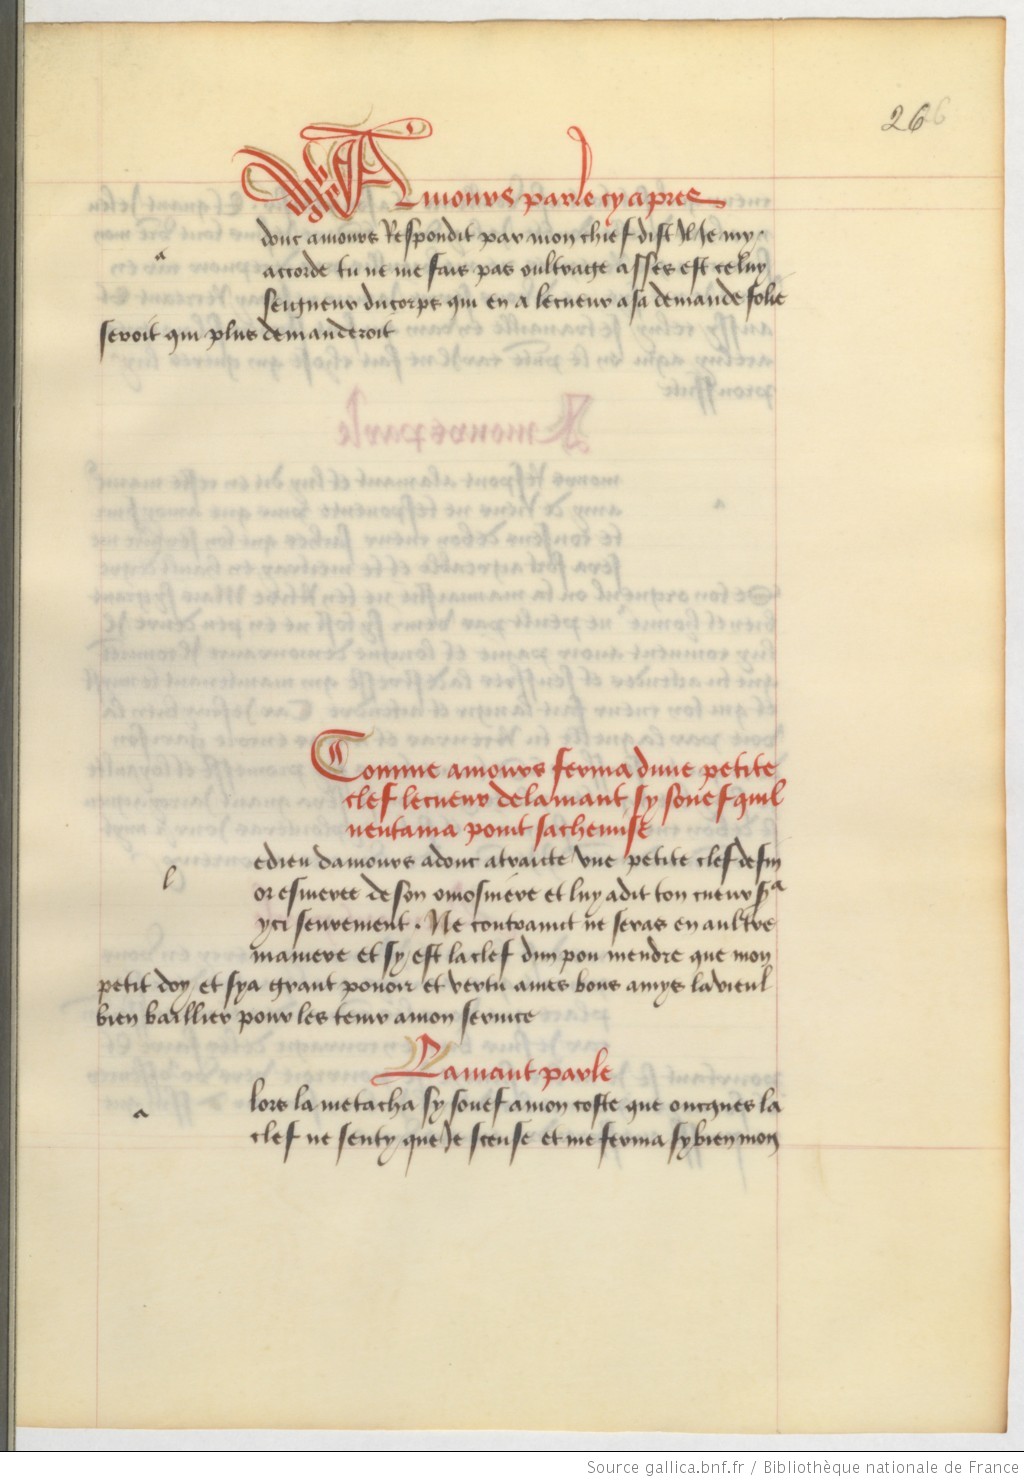 26
Amours parle cy apres
donc amours Respondit par mon chief dist Il Je my
a
accorde tu ne me fais pas oultrage asses est celuy
seigneur du corps qui en a le cueur a sa demande folie
seroit qui plus demanderoit
Comme amours ferma dune petite
clef le cueur de lamant sy souef quil
nentama point sa chemise
e dieu damours adonc a traicte vne petite clef de fin
l
or esmeree de son omosniere et luy a dit ton cueur sa
yci seurement. Ne contraint ne seras en aultre
maniere et sy est la clef dun pou mendre que mon
petit doy et sy a grant pouoir et vertu a mes bons amys la vieul
bien baillier pour les tenir a mon seruice
Lamant parle
lors la metacha sy souef a mon coste que oncques la
a
clef ne senty que Je sceuse et me ferma sy bien mon
Source gallica.bnf.fr / Bibliothèque nationale de France